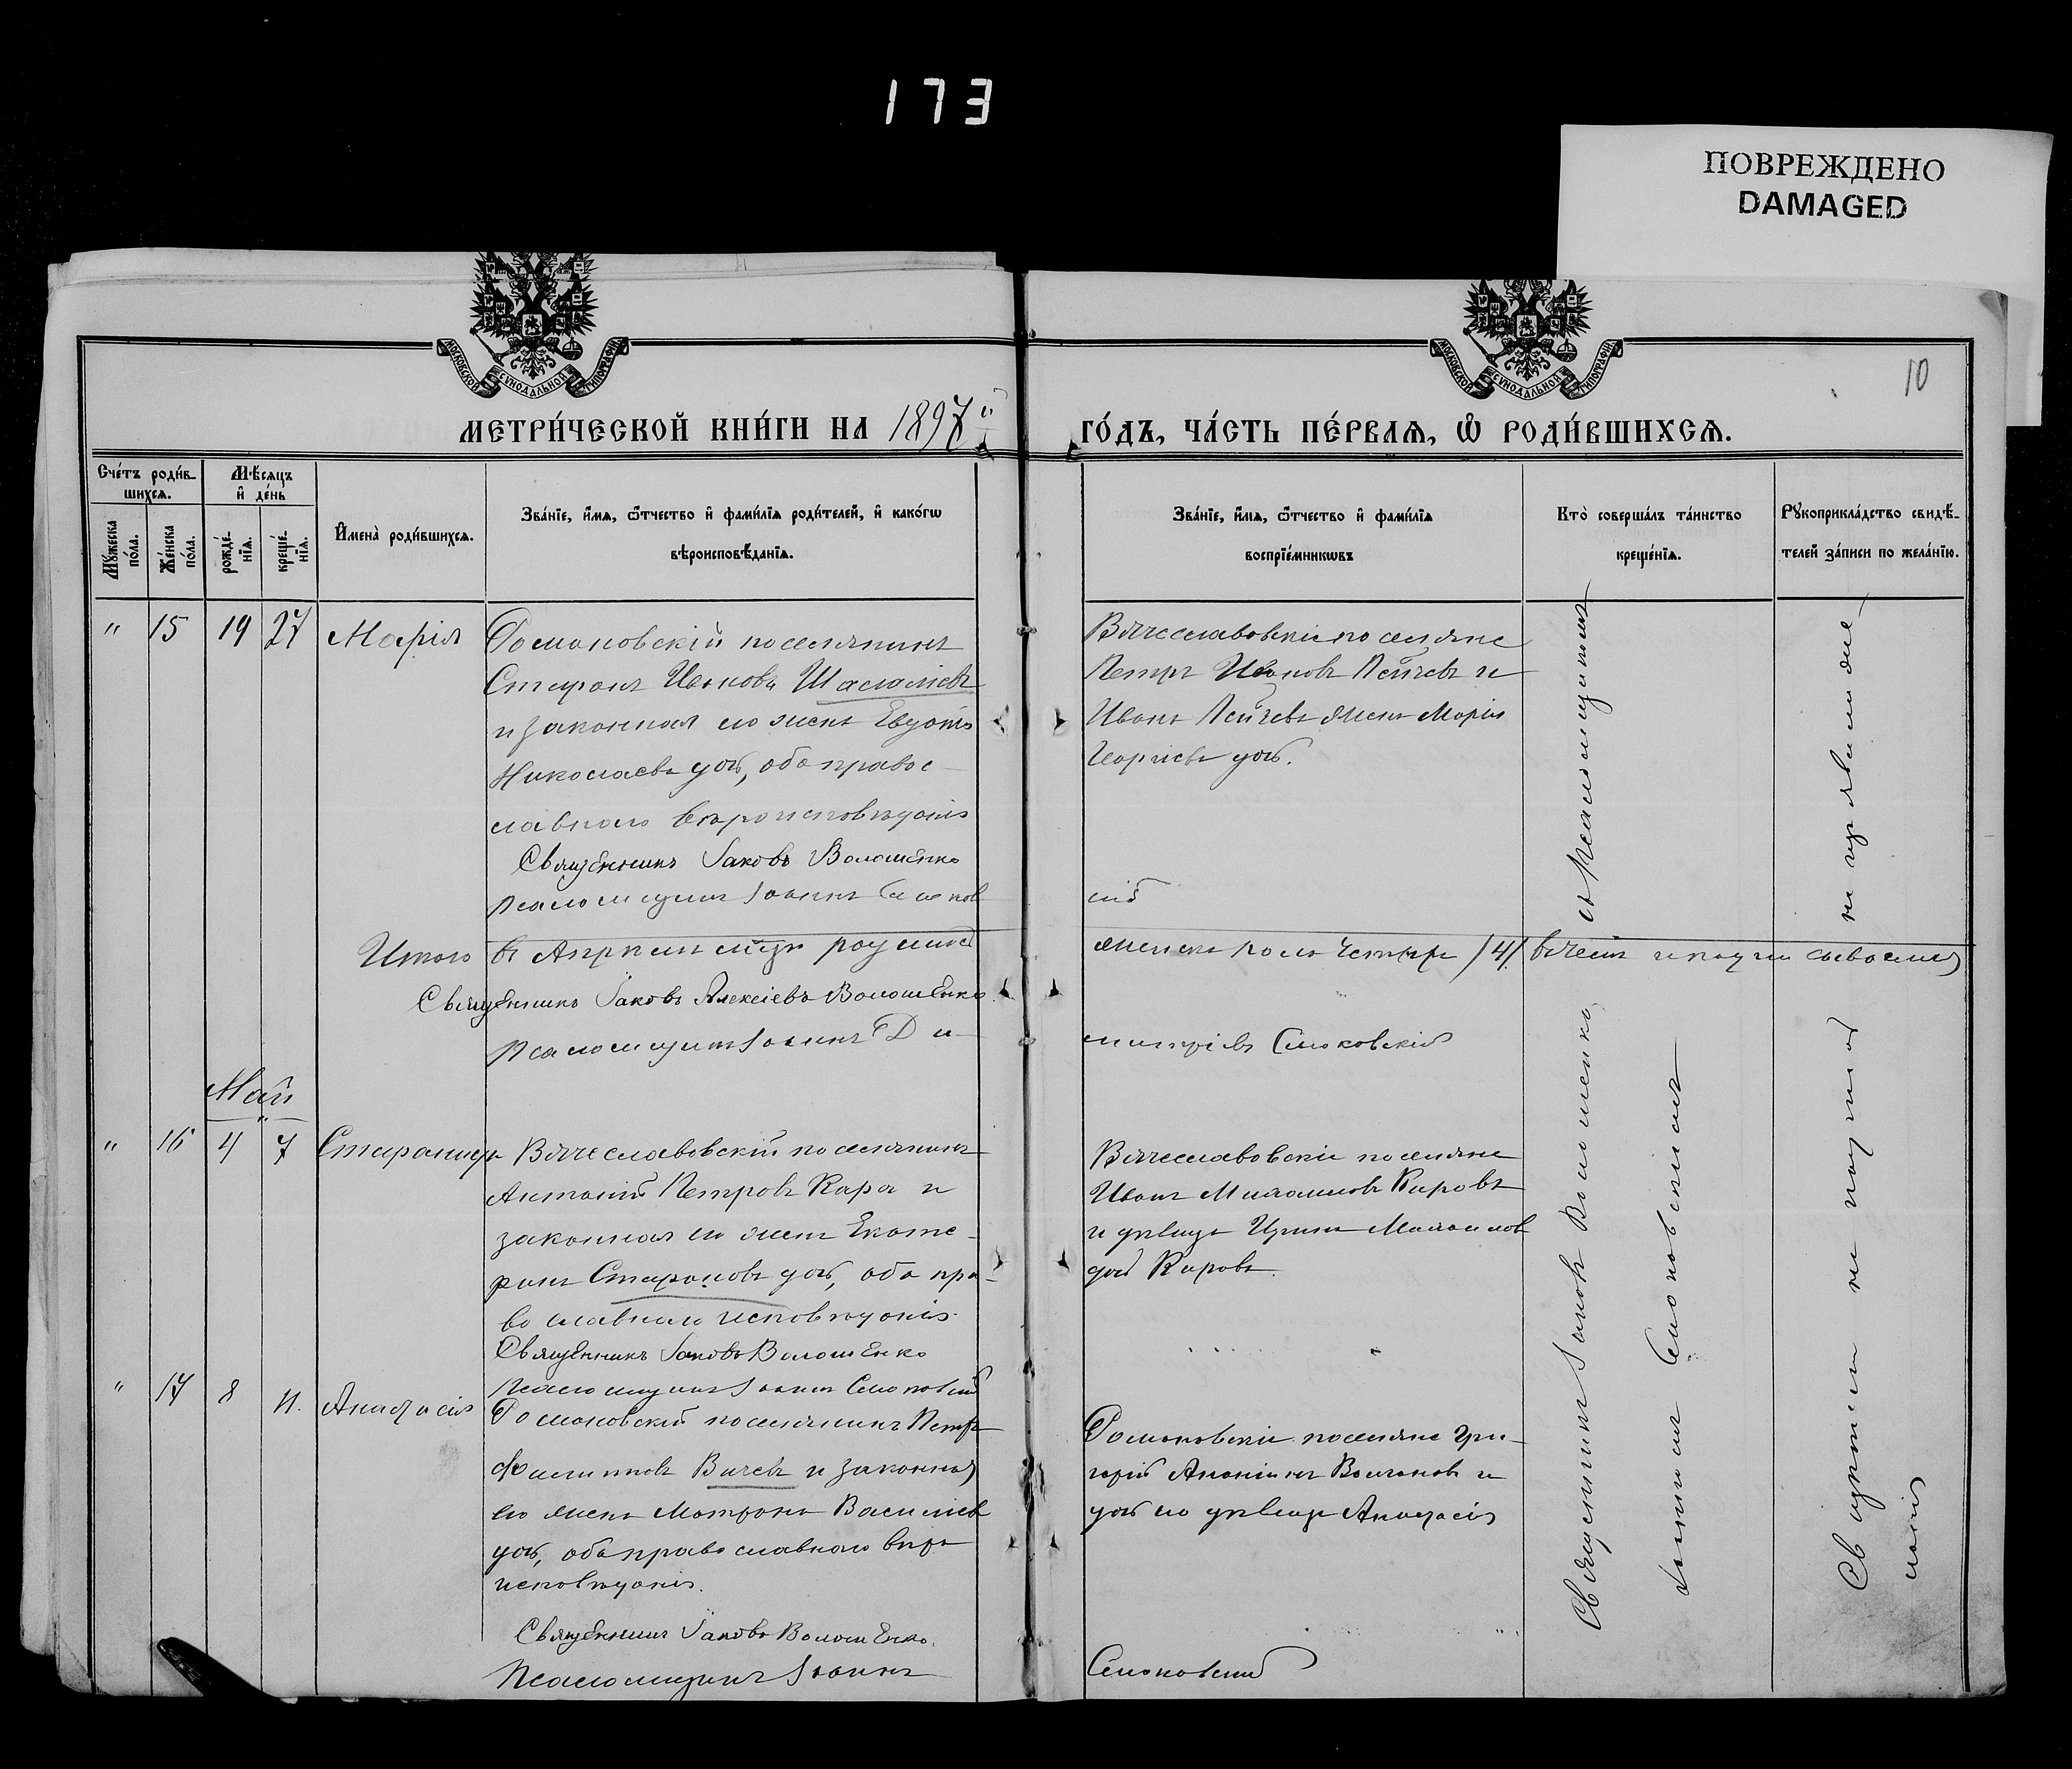 173
ПОВРЕЖДЕНО
DAMAGED
МОСКОВСКОЙ СѴНОДАЛЬНОЙ ТИПОГРАФІИ
МОСКОВСКОЙ СѴНОДАЛЬНОЙ ТИПОГРАФІИ
10
МЕТРИ́ЧЕСКОЙ КНИ́ГИ НА 1897 й
ГО́ДЪ, ЧА́СТЬ ПЕ́РВАѦ, Ѽ РОДИ́ВШИХСѦ.
Сче́тъ роди́в-
шихсѧ.
Мѣ́сѧцъ
и҆ де́нь
Мꙋжеска по́ла.
Же́нска по́ла.
рожде́-
нїѧ.
креще́-
нїѧ.
И҆мена̀ роди́вшихсѧ.
Зва́нїе, и҆́мѧ, ѻ҆́тчество и҆ фами́лїѧ роди́телей, и҆ како́гѡ
вѣроисповѣ́данїѧ.
Зва́нїе, и҆́мѧ, ѻ҆́тчество и҆ фами́лїѧ
воспрїе́мникѡвъ
Кто̀ соверша́лъ та́инство
креще́нїѧ.
Рꙋкоприкла́дство свидѣ́-
телей за́писи по жела́нїю.
" 15 19 27 Марія
Романовскій поселянинъ
Стефанъ Ивановъ
и законная его жена Евдокія
Николаева дочь, оба правос-
лавнаго вѣроисповѣданія
Священникъ Іаковъ Волошенко
Псаломщикъ Іоаннъ Слюков
Вячеславовскіе поселяне
Петръ Ивановъ Пейчевъ и
Ивана Пейчева жена Марія
Георгіева дочь.
скій
Итого въ Апрѣлѣ м-цѣ родилось
женска пола четыре /4/.
Священникъ Іаковъ Алексіевъ Волошенко
Псаломщикъ Іоаннъ Ди-
митріевъ Слюковскій
Май
" 16 4 7 Стефанида
Вячеславовскій поселянинъ
Антоній Петровъ Кара и
законная его жена Екате-
рина Стефанова дочь, оба пра-
вославнаго исповѣданія
Священникъ Іаковъ Волошенко
Псаломщикъ Іоаннъ Слюковскій
Вячеславовскіе поселяне
Иванъ Михаиловъ Кировъ
и дѣвица Ирина Михаилов
дочь Кирова.
" 17 8 11. Анастасія
Романовскій поселянинъ Петръ
Филипповъ Вичевъ и законная
его жена Матрона Василіева
дочь, оба православнаго вѣро
исповѣданія.
Священникъ Іаковъ Волошенко.
Псаломщикъ Іоаннъ
Романовскіе поселяне Гри-
горій Ананіинъ Волчановъ и
дочь его дѣвица Анастасія
Слюковскій
Священникъ Іаковъ Волошенко
съ Псаломщикомъ
Іоанномъ Слюковскимъ